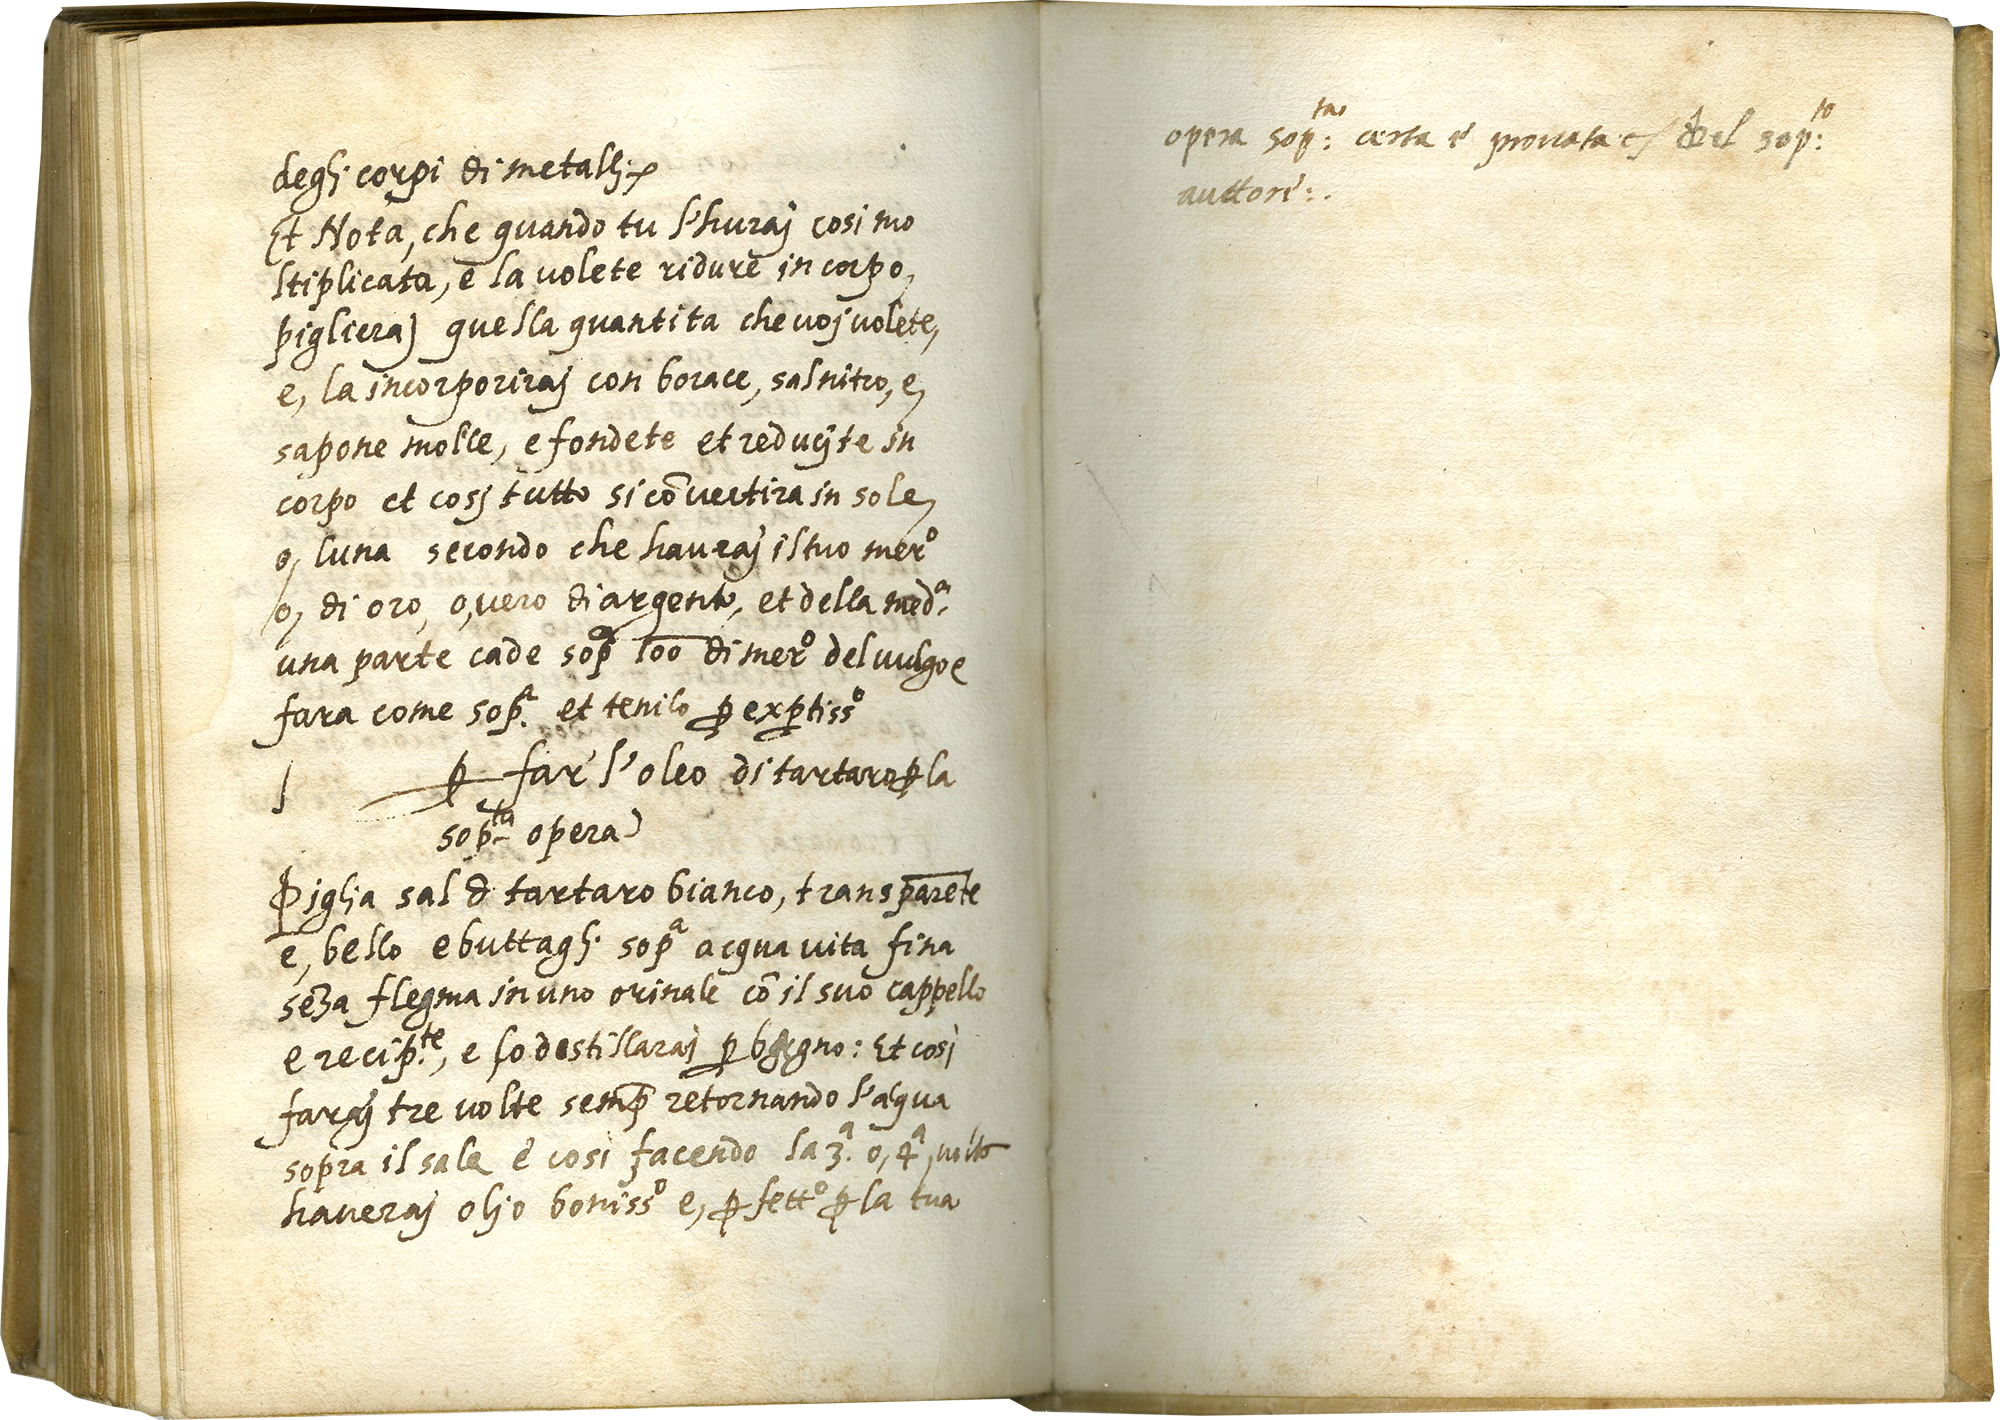 degli corpi di metalli
Et Nota, che quando tu l'huraj cosi mo
ltiplicata, e la volete ridure in corpo,
piglieraj quella quantita che voj volete,
e, la incorporiraj con borace, salnitro, e,
sapone molle, e fondete et reducijte in
corpo et cosj tutto si cōvertira in sole,
o, luna secondo che hauraj il tuo merº
o, di oro, o, vero di argento, et della medª.
una parte cade sopª 100 di merº del vulgo e
fara come sopª. et tenilo ꝑ exꝑtissº
ꝑ far l'oleo di tartaro ꝑ la
sop.ta opera
Piglia sal d tartaro bianco, transparēte
e, bello e buttagli sopª acqua vita fina
sēza flegma in uno orinale cō il suo cappello
e recip.te, e lo destillaraj ꝑ bagno: Et cosi
faraj tre volte semꝑ retornando l'aqua
sopra il sale e cosi facendo la 3ª. o, 4ª, volto
haueraj olio bonissº e, ꝑfettº ꝑ la tua
opera sop:ta certa e prouata del sop:to
auttore:.